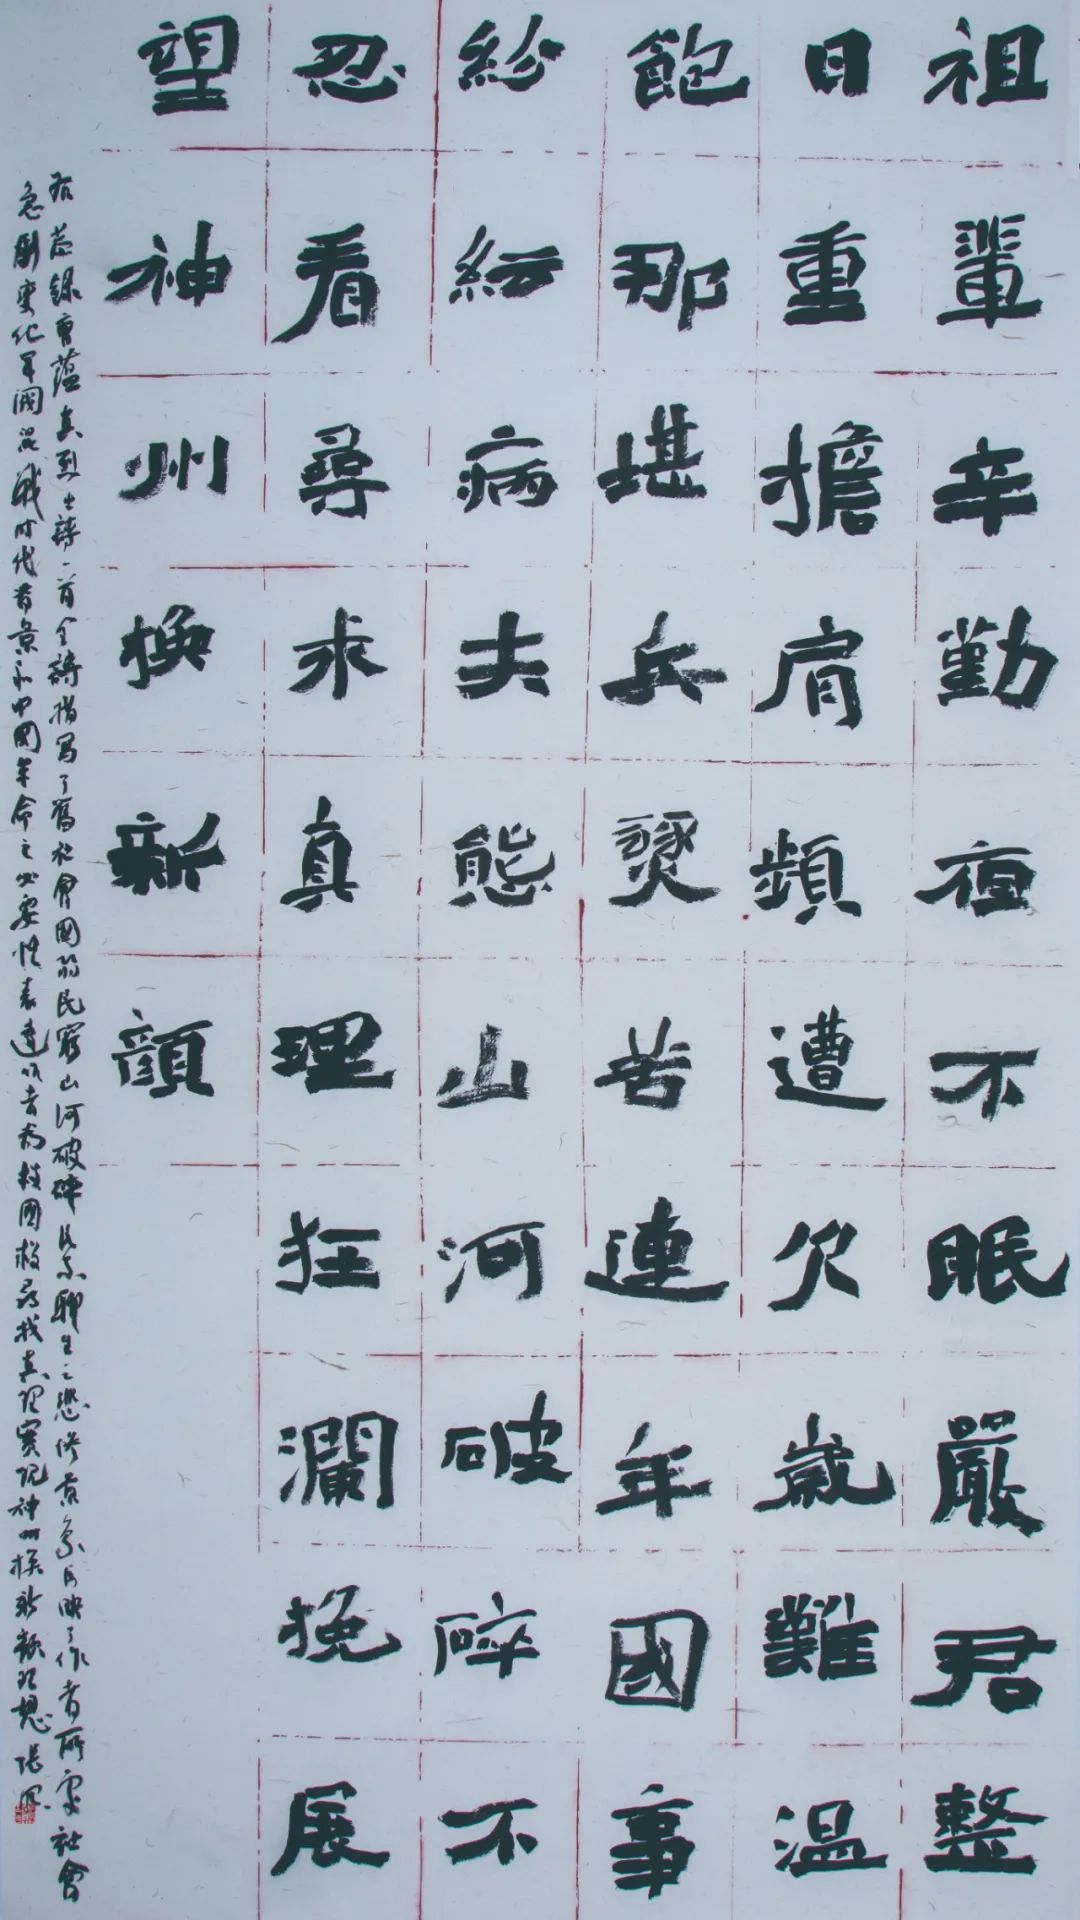 祖輩辛勤夜不眠嚴君整
日重擔肩頻遭欠歲難溫
飽那堪兵燹苦連年國事
紛紜病夫態山河破碎不
忍看尋求真理狂瀾挽展
望神州換新顏
右 錄曹蘊真烈士詩一首全詩描寫了舊社會國弱民窮山河破碎民不聊生之悲慘景象反映了作者所處社會
急劇變化軍國混戰時代背景和中國革命之必要性表達作者為救國救尋找真理實現神州換新顏理想張